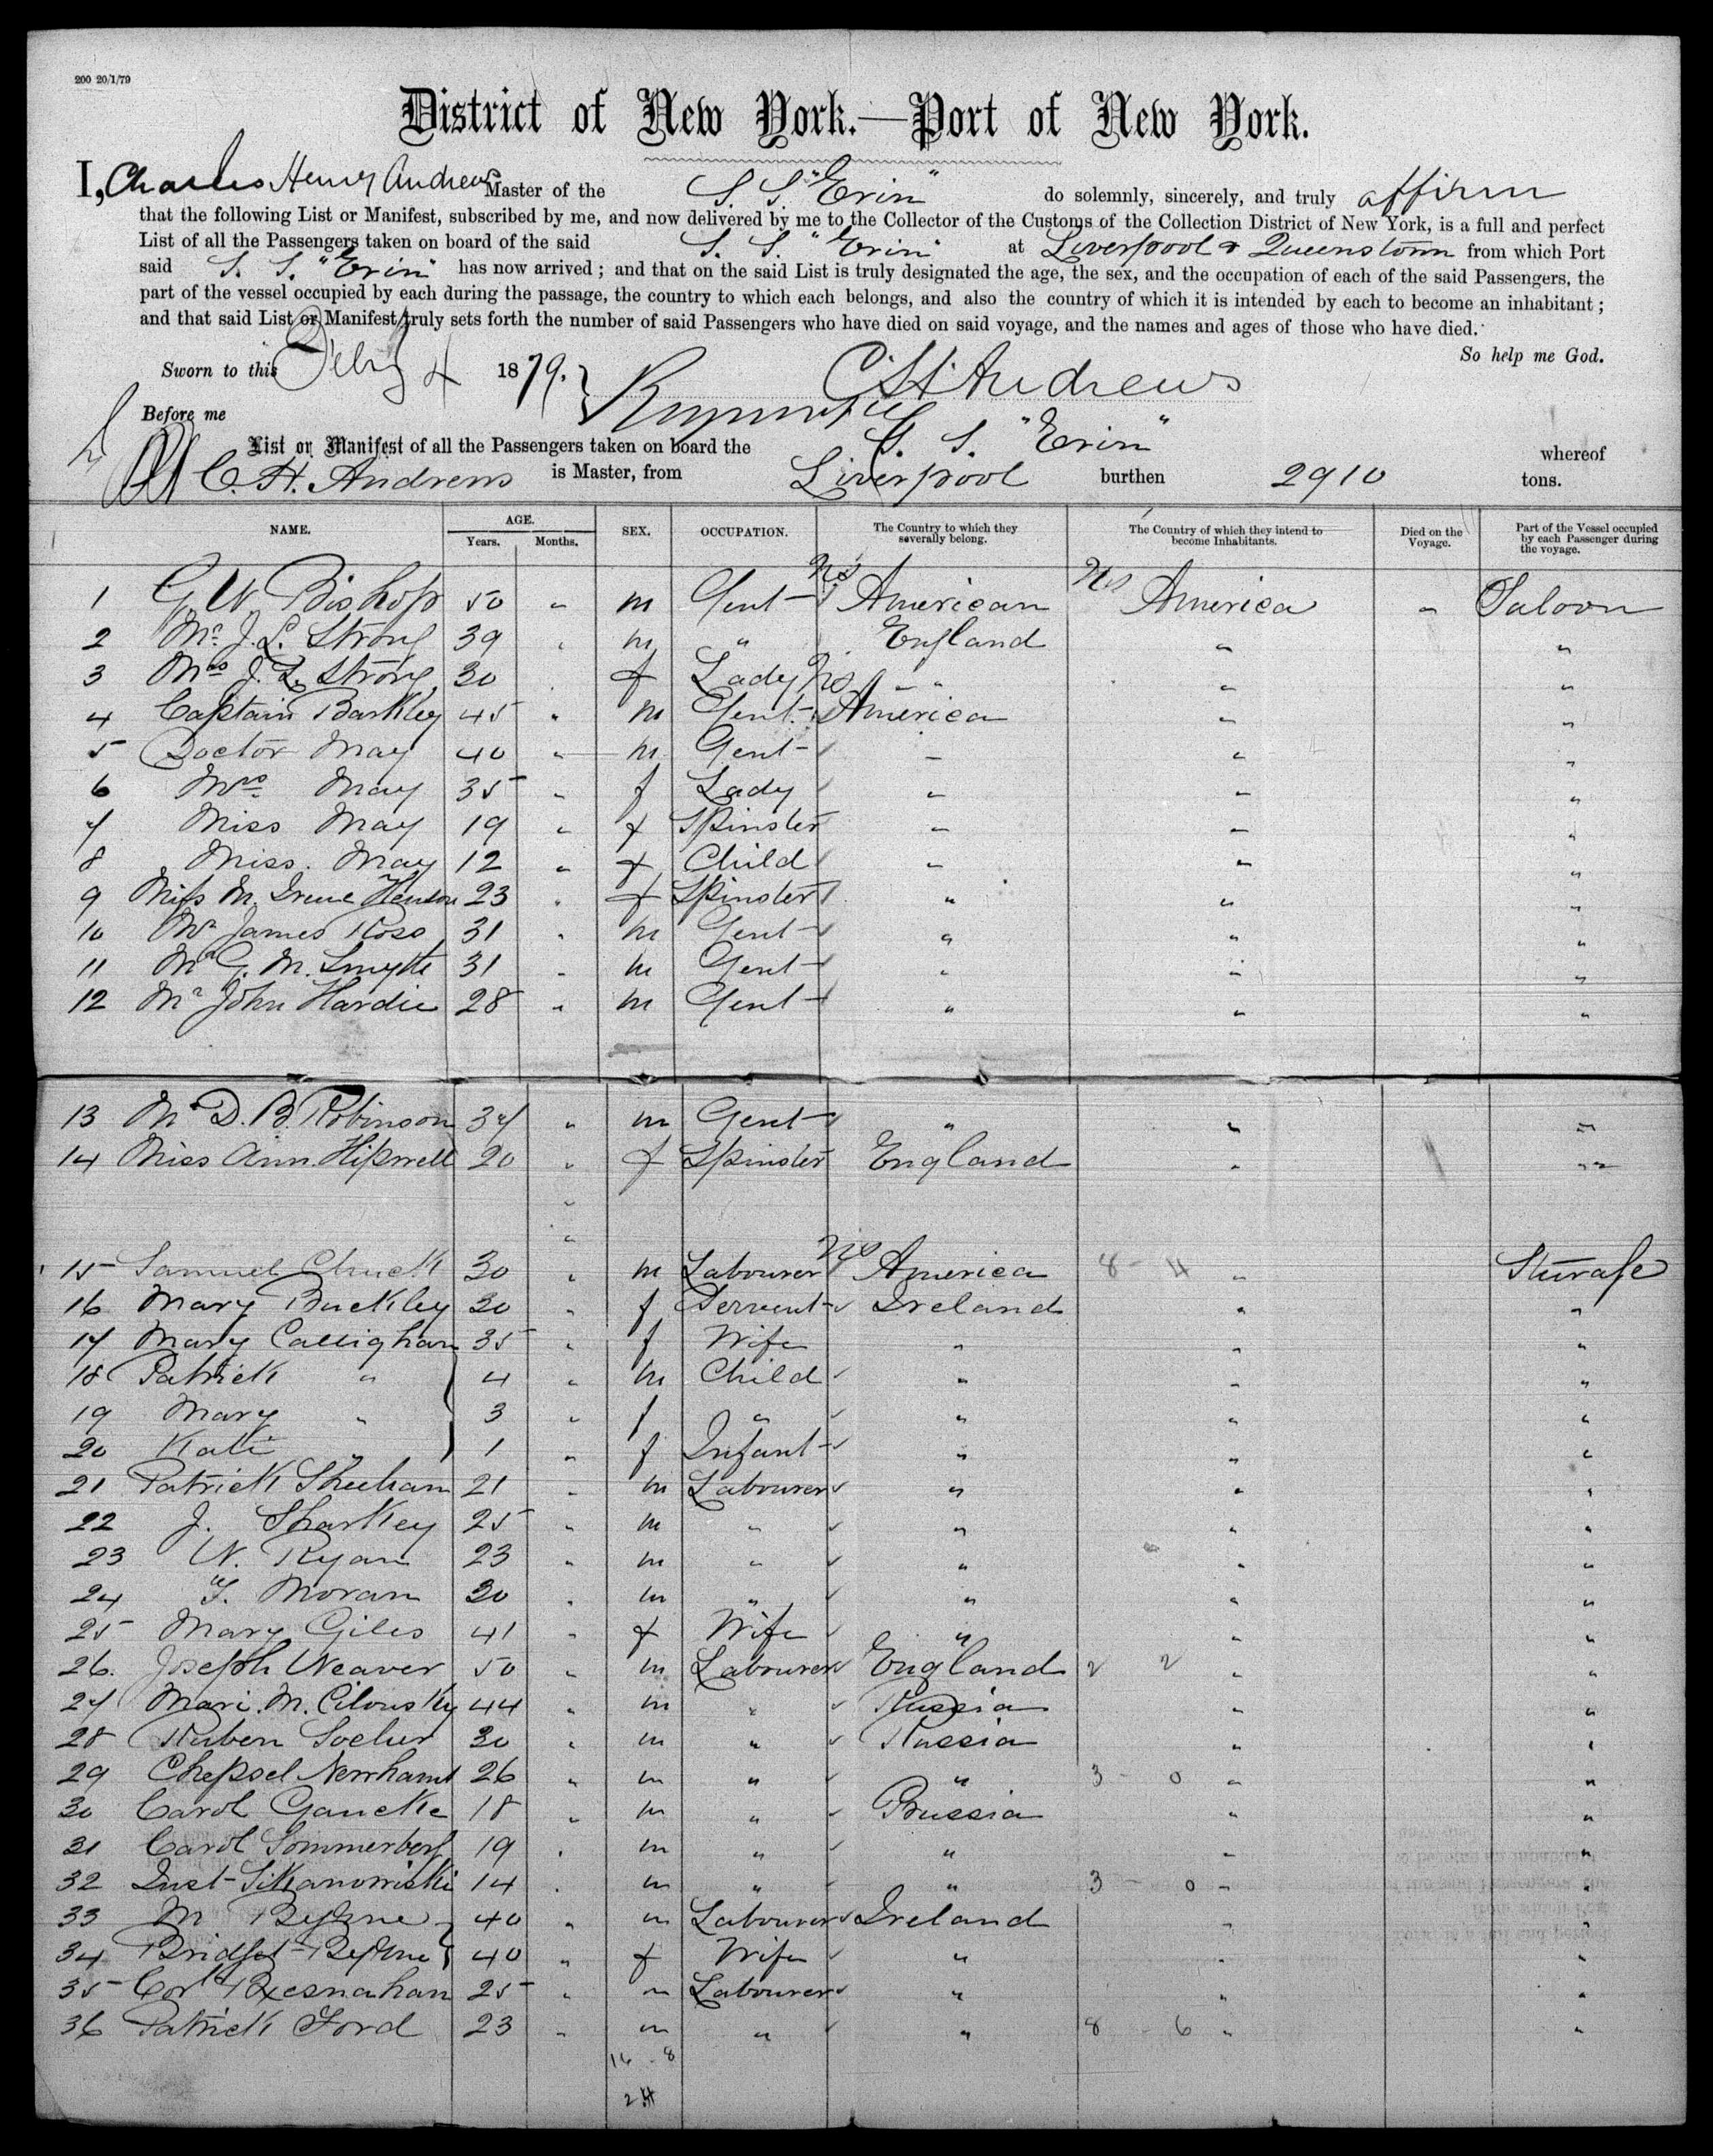 200 20/1/79
District of New York.—Port of New York.
I, Charles Henry Andrews Master of the S. S. "Erin" do solemnly, sincerely, and truly affirm
that the following List or Manifest, subscribed by me, and now delivered by me to the Collector of the Customs of the Collection District of New York, is a full and perfect
List of all the Passengers taken on board of the said S. S. "Erin" at Liverpool & Queenstown from which Port
said S. S. "Erin" has now arrived; and that on the said List is truly designated the age, the sex, and the occupation of each of the said Passengers, the
part of the vessel occupied by each during the passage, the country to which each belongs, and also the country of which it is intended by each to become an inhabitant;
and that said List or Manifest truly sets forth the number of said Passengers who have died on said voyage, and the names and ages of those who have died.
So help me God.
Sworn to this Feby 4 1879. C H Andrews
Before me
List or Manifest of all the Passengers taken on board the S. S. "Erin" whereof
C. H. Andrews is Master, from Liverpool burthen 2910 tons.
NAME. AGE. Years. Months. SEX. OCCUPATION. The Country to which they severally belong. The Country of which they intend to become Inhabitants. Died on the Voyage. Part of the Vessel occupied by each Passenger during the voyage.
1 G W Bishop 50 " m Gent American America " Saloon
2 Mr. J. L. Strong 39 " m " England " "
3 Mrs J. L. Strong 30 f Lady " " "
4 Captain Barkley 45 " m Gent. America " "
5 Doctor May 40 " m Gent " " "
6 Mrs. May 35 " f Lady " " "
7 Miss May 19 " f Spinster " " "
8 Miss. May 12 " f Child " " "
9 Miss M. Irene Henson 23 " f Spinster " " "
10 Mr James Ross 31 " m Gent " " "
11 Mr G. M. Smythe 31 " m Gent " " "
12 Mr John Hardie 28 " m Gent " " "
13 Mr D. B. Robinson 37 " m Gent " " "
14 Miss Ann Hipwell 20 " f Spinster England " "
15 Samuel Chuck 30 " m Labourer America 8 - 4 " Sturage
16 Mary Buckley 30 " f Servent Ireland " "
17 Mary Callighan 35 " f Wife " " "
18 Patrick " 4 " m Child " " "
19 Mary " 3 " f " " " "
20 Kate " 1 " f Infant " " "
21 Patrick Sheehan 21 " m Labourer " " "
22 J. Sharkey 25 " m " " " "
23 W. Ryan 23 " m " " " "
24 Moran 30 " m " " " "
25 Mary Giles 41 " f Wife " " "
26. Joseph Weaver 50 " m Labourer England 2 2 " "
27 Mari. M. Cilousky 44 " m " Russia " "
28 Ruben 30 " m " Russia " "
29 Chepsel 26 " m " " 3 - 0 " "
30 Carol Gancke 18 " m " Prussia " "
31 Carol Sommerberg 19 " m " " " "
32 14 " m " " 3 - 0 " "
33 M Byrne 40 " m Labourer Ireland " "
34 Bridget Byrne 40 " f Wife " " "
35 Corls Bresnahan 25 " m Labourer " " "
36 Patrick Ford 23 " m " " 8 - 6 " "
16 - 8
24